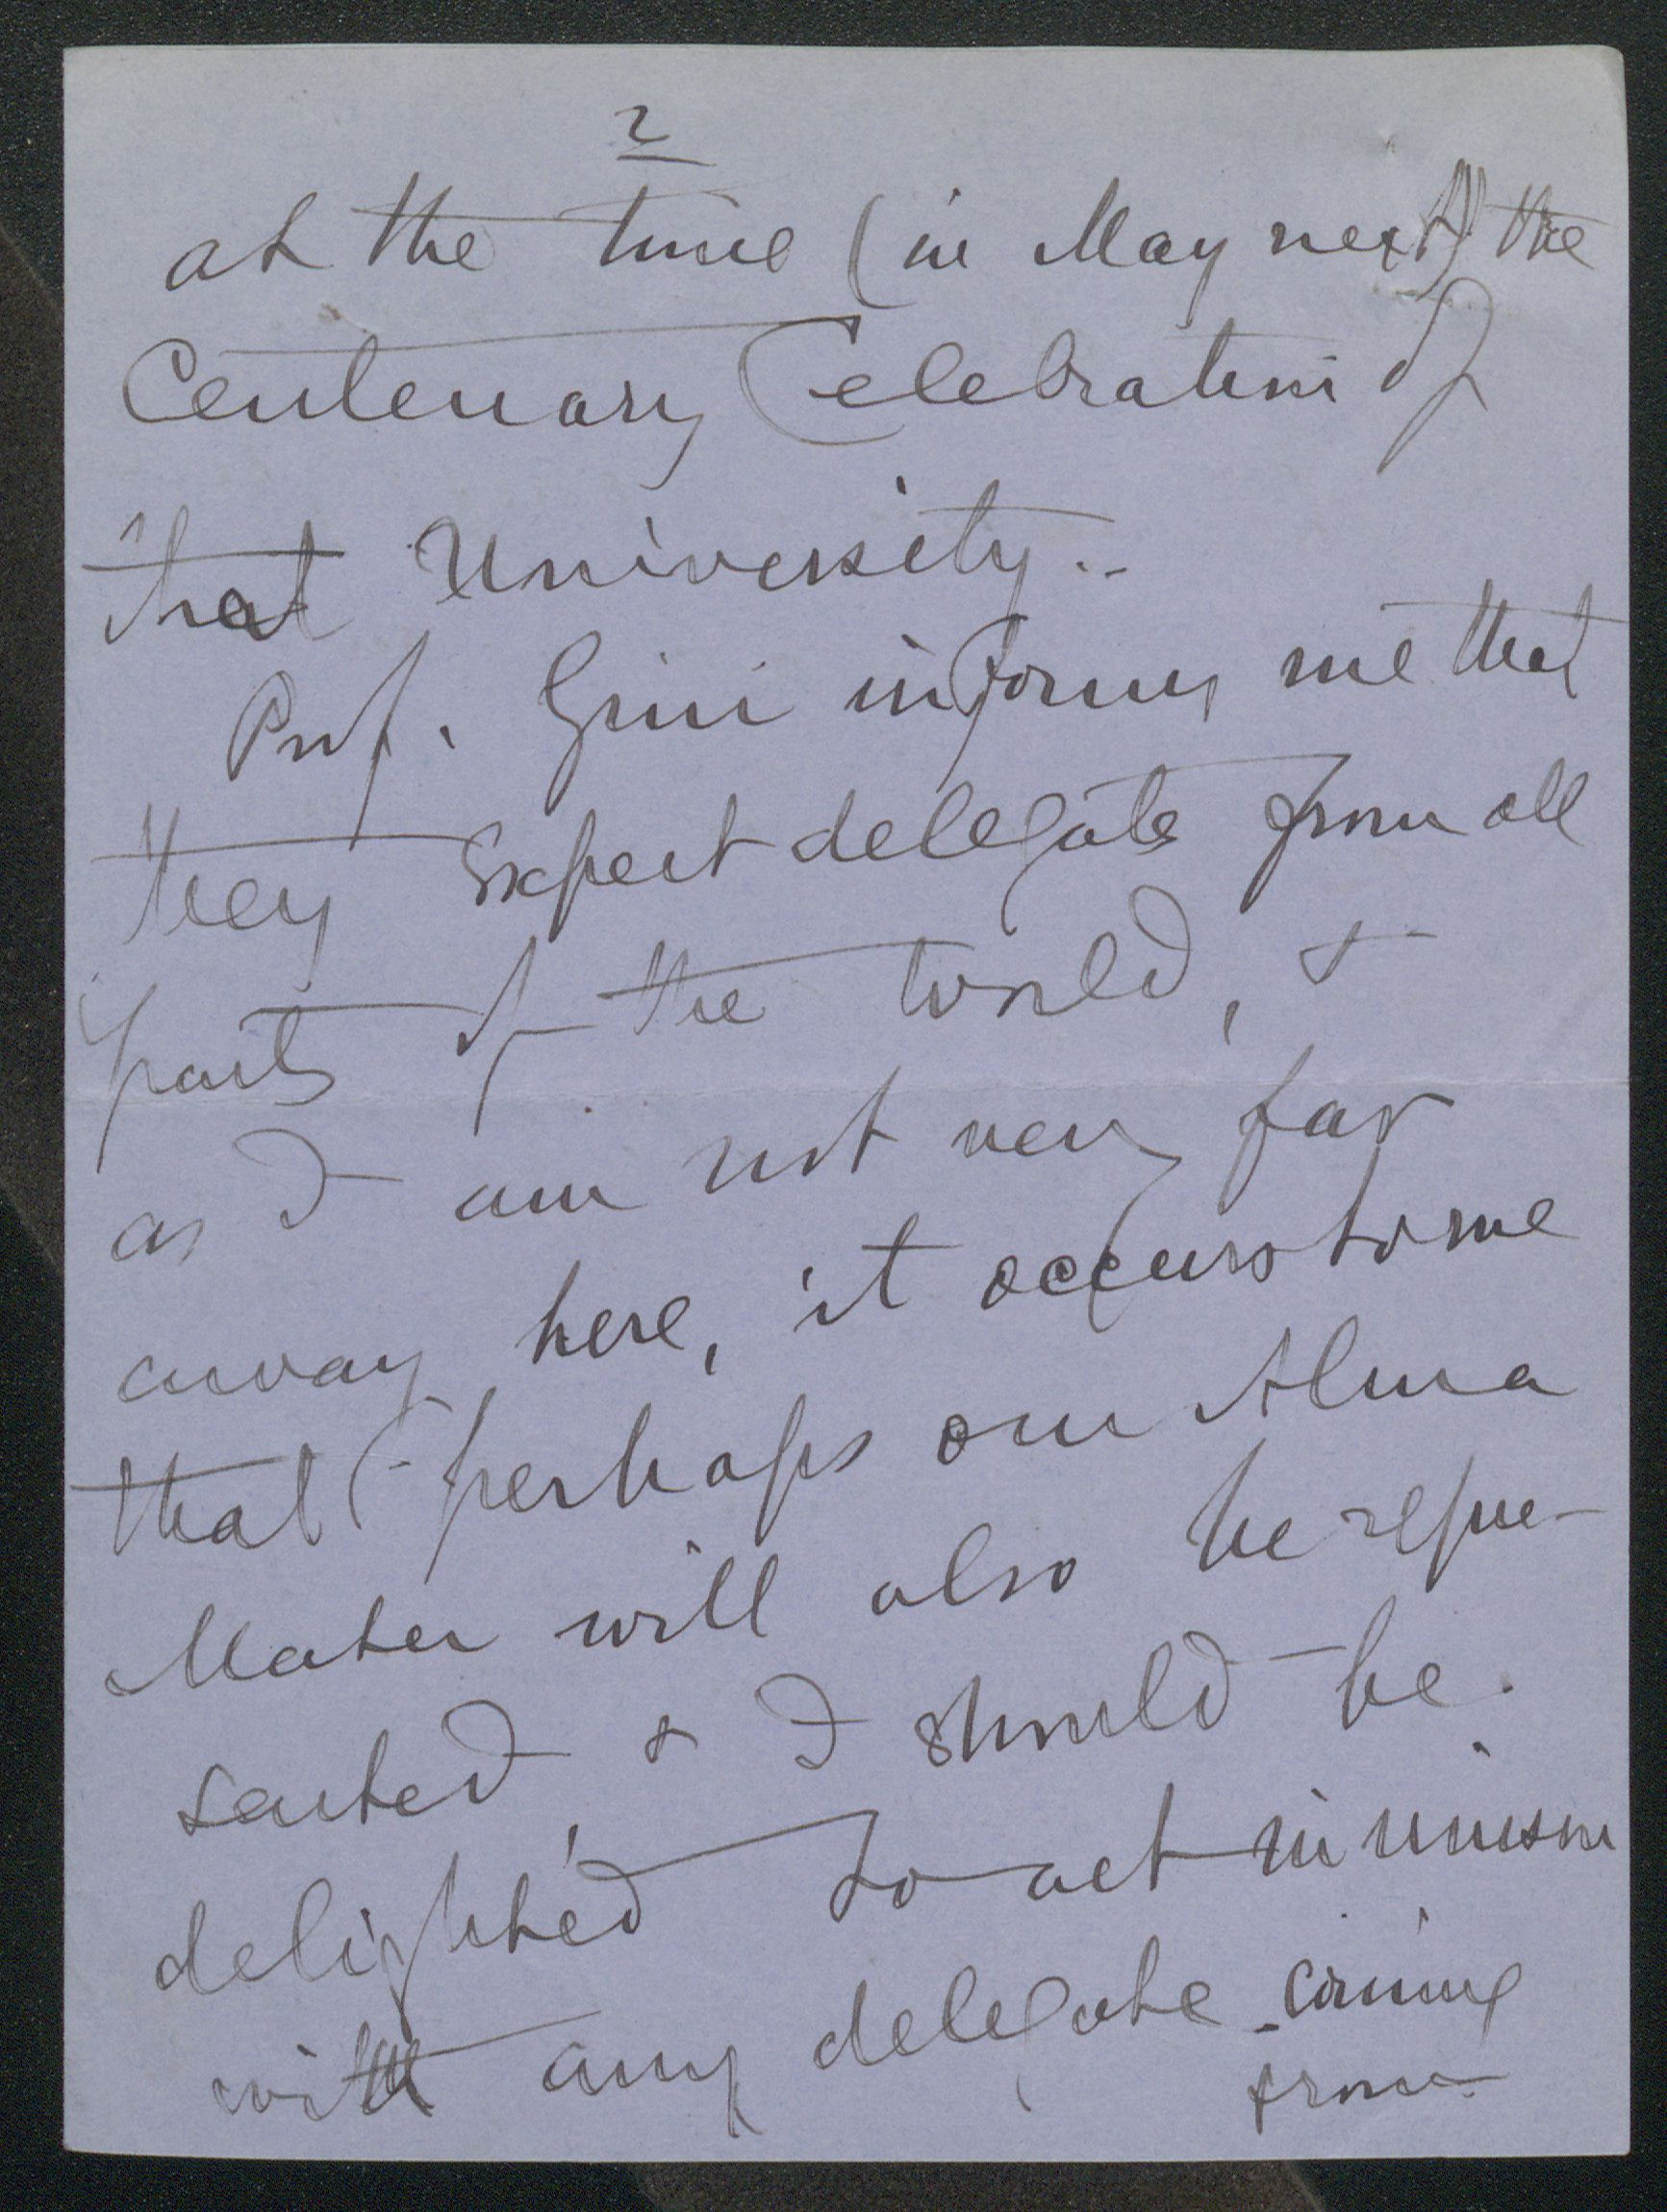 2
at the time (in May next) the
Centenary Celebration of
that University..
Prof. Gini informs me that
they expect delegates from all
parts of the world, &
as I am not very far
away here, it occurs to me
that perhaps our Alma
Mater will also be repre-
sented, & I should be
delighted to act in unison
with any delegate coming
from